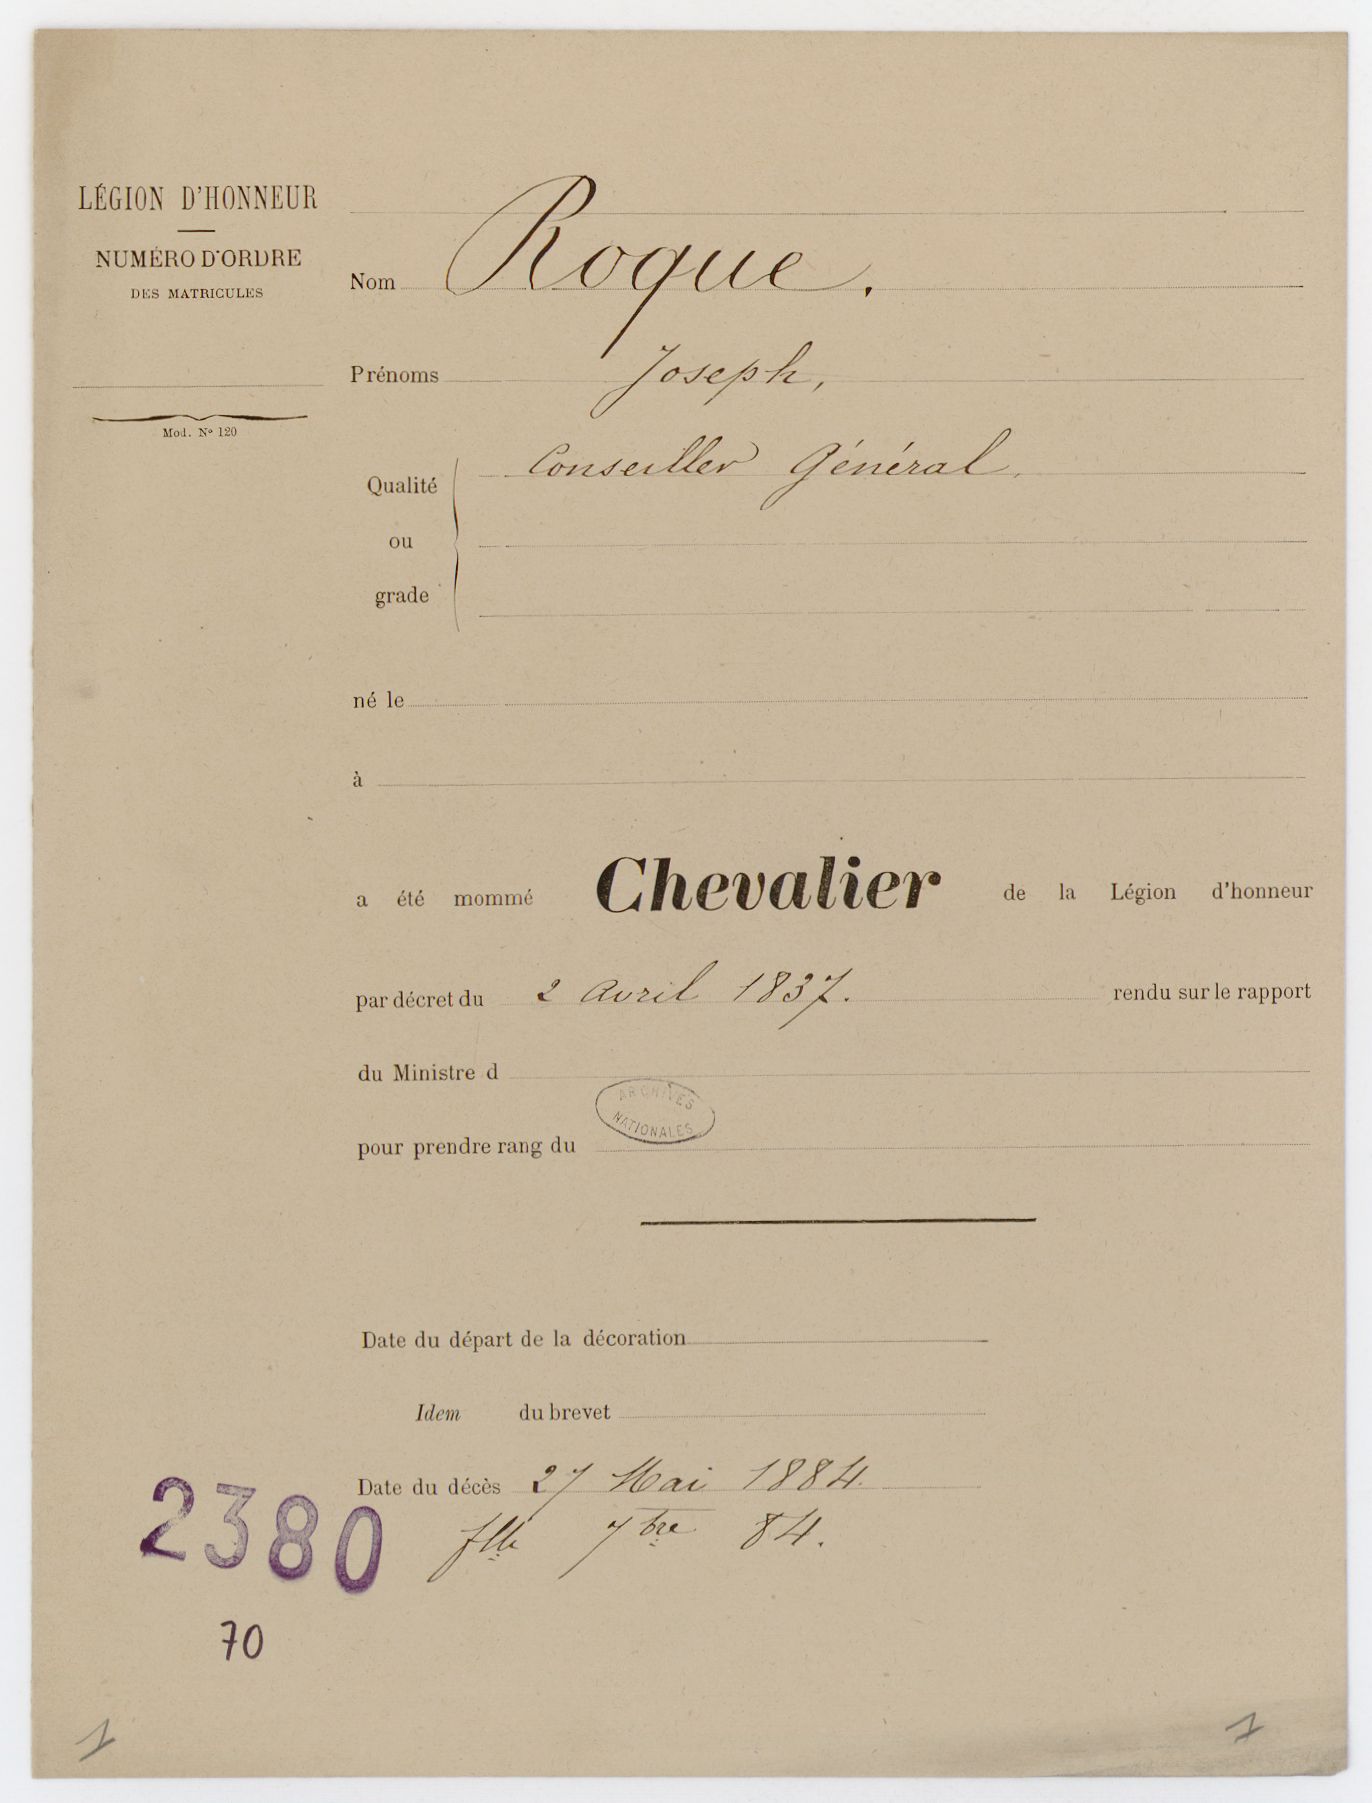 LÉGION D'HONNEUR
NUMÉRO D'ORDRE
DES MATRICULES
Mod. Nº 120
Nom Roque.
Prénoms Joseph,
Qualité Conseiller Général,
ou
grade
né le
à
a été mommé Chevalier de la Légion d'honneur
par décret du 2 Avril 1837. rendu sur le rapport
du Ministre d
ARCHIVES
NATIONALES
pour prendre rang du
Date du départ de la décoration
Idem du brevet
Date du décès 27 Mai 1884.
flle 7bre 84.
2380
70
1 1